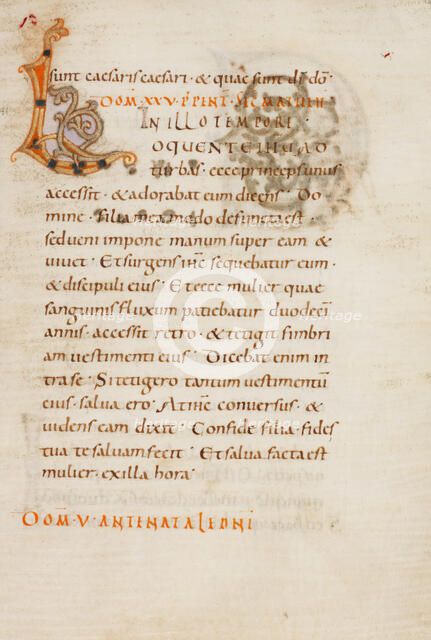 sunt caesaris caesari · & quae sunt di dō
DOM · XXV · P PENT ·
IN ILLO TEMPORE
LOQUENTE IHU AD
turbas · ecce princeps unus
accessit · & adorabat eum dicens · Do
mine · filia mea modo defuncta est ·
sed ueni impone manum super eam &
uiuet · Et surgens ihc sequebatur eum ·
& discipuli eius · Et ecce mulier quae
sanguinis fluxum patiebatur duodeci
annis · accessit retro · & tetigit fimbri
am uestimenti eius · Dicebat enim in
tra se · Si tetigero tantum uestimentū
eius · salua ero · At ihc conuersus · &
uidens eam dixit · Confide filia · fides
tua te saluam fecit · Et salua facta est
mulier · ex illa hora ·
DOM · V · ANTE NATALE DNI
heritage